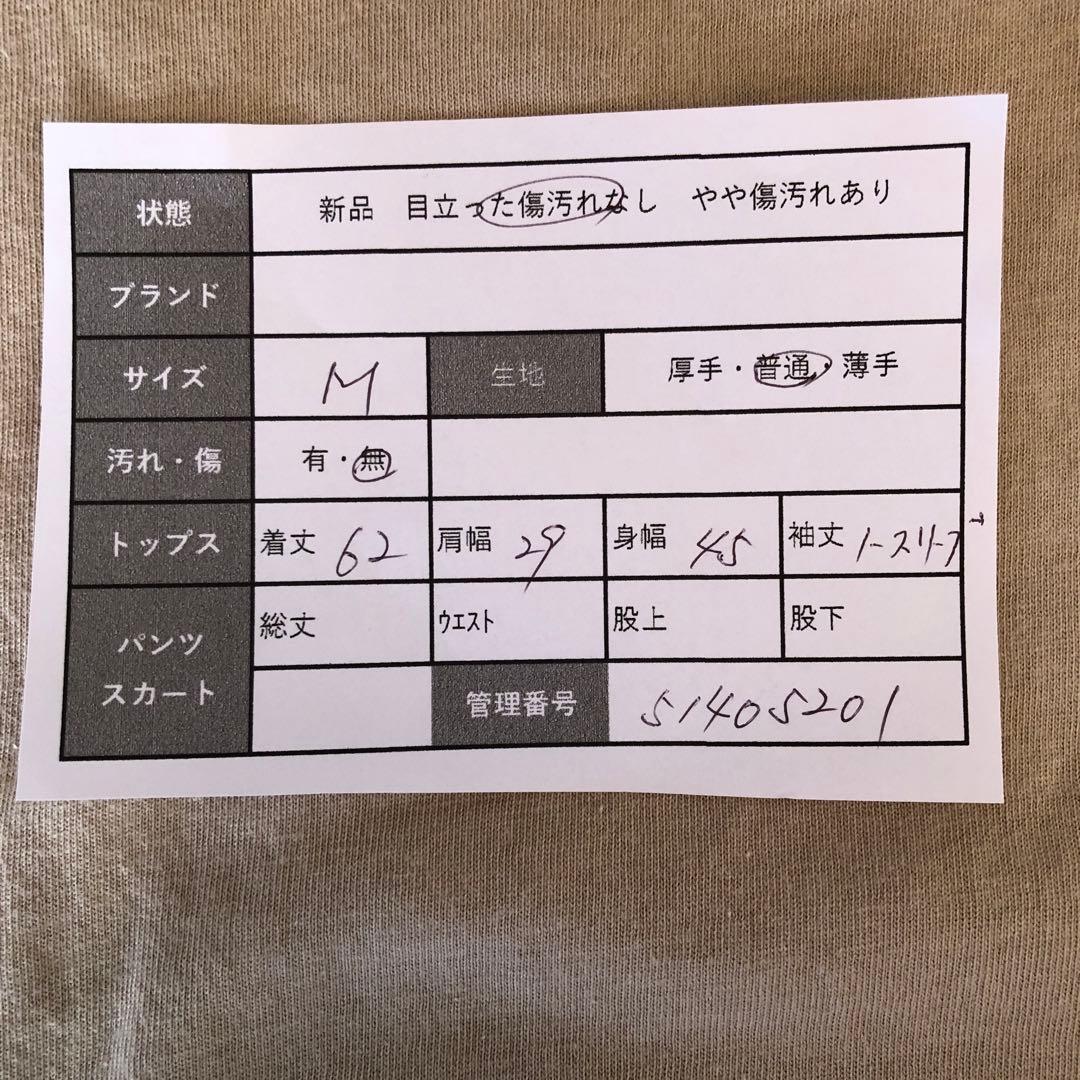 状態 新品 目立った傷汚れなし やや傷汚れあり
ブランド
サイズ M 生地 厚手・普通・薄手
汚れ・傷 有・無
トップス 着丈 62 肩幅 29 身幅 45 袖丈 ノースリーブ
パンツ 総丈 ウエスト 股上 股下
スカート 管理番号 51405201